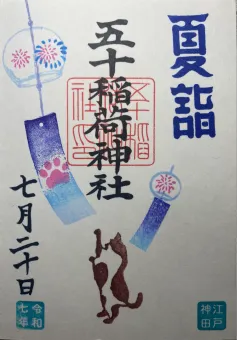 夏詣
五十稲荷神社
七月二十日
江戸
神田
令和
七年